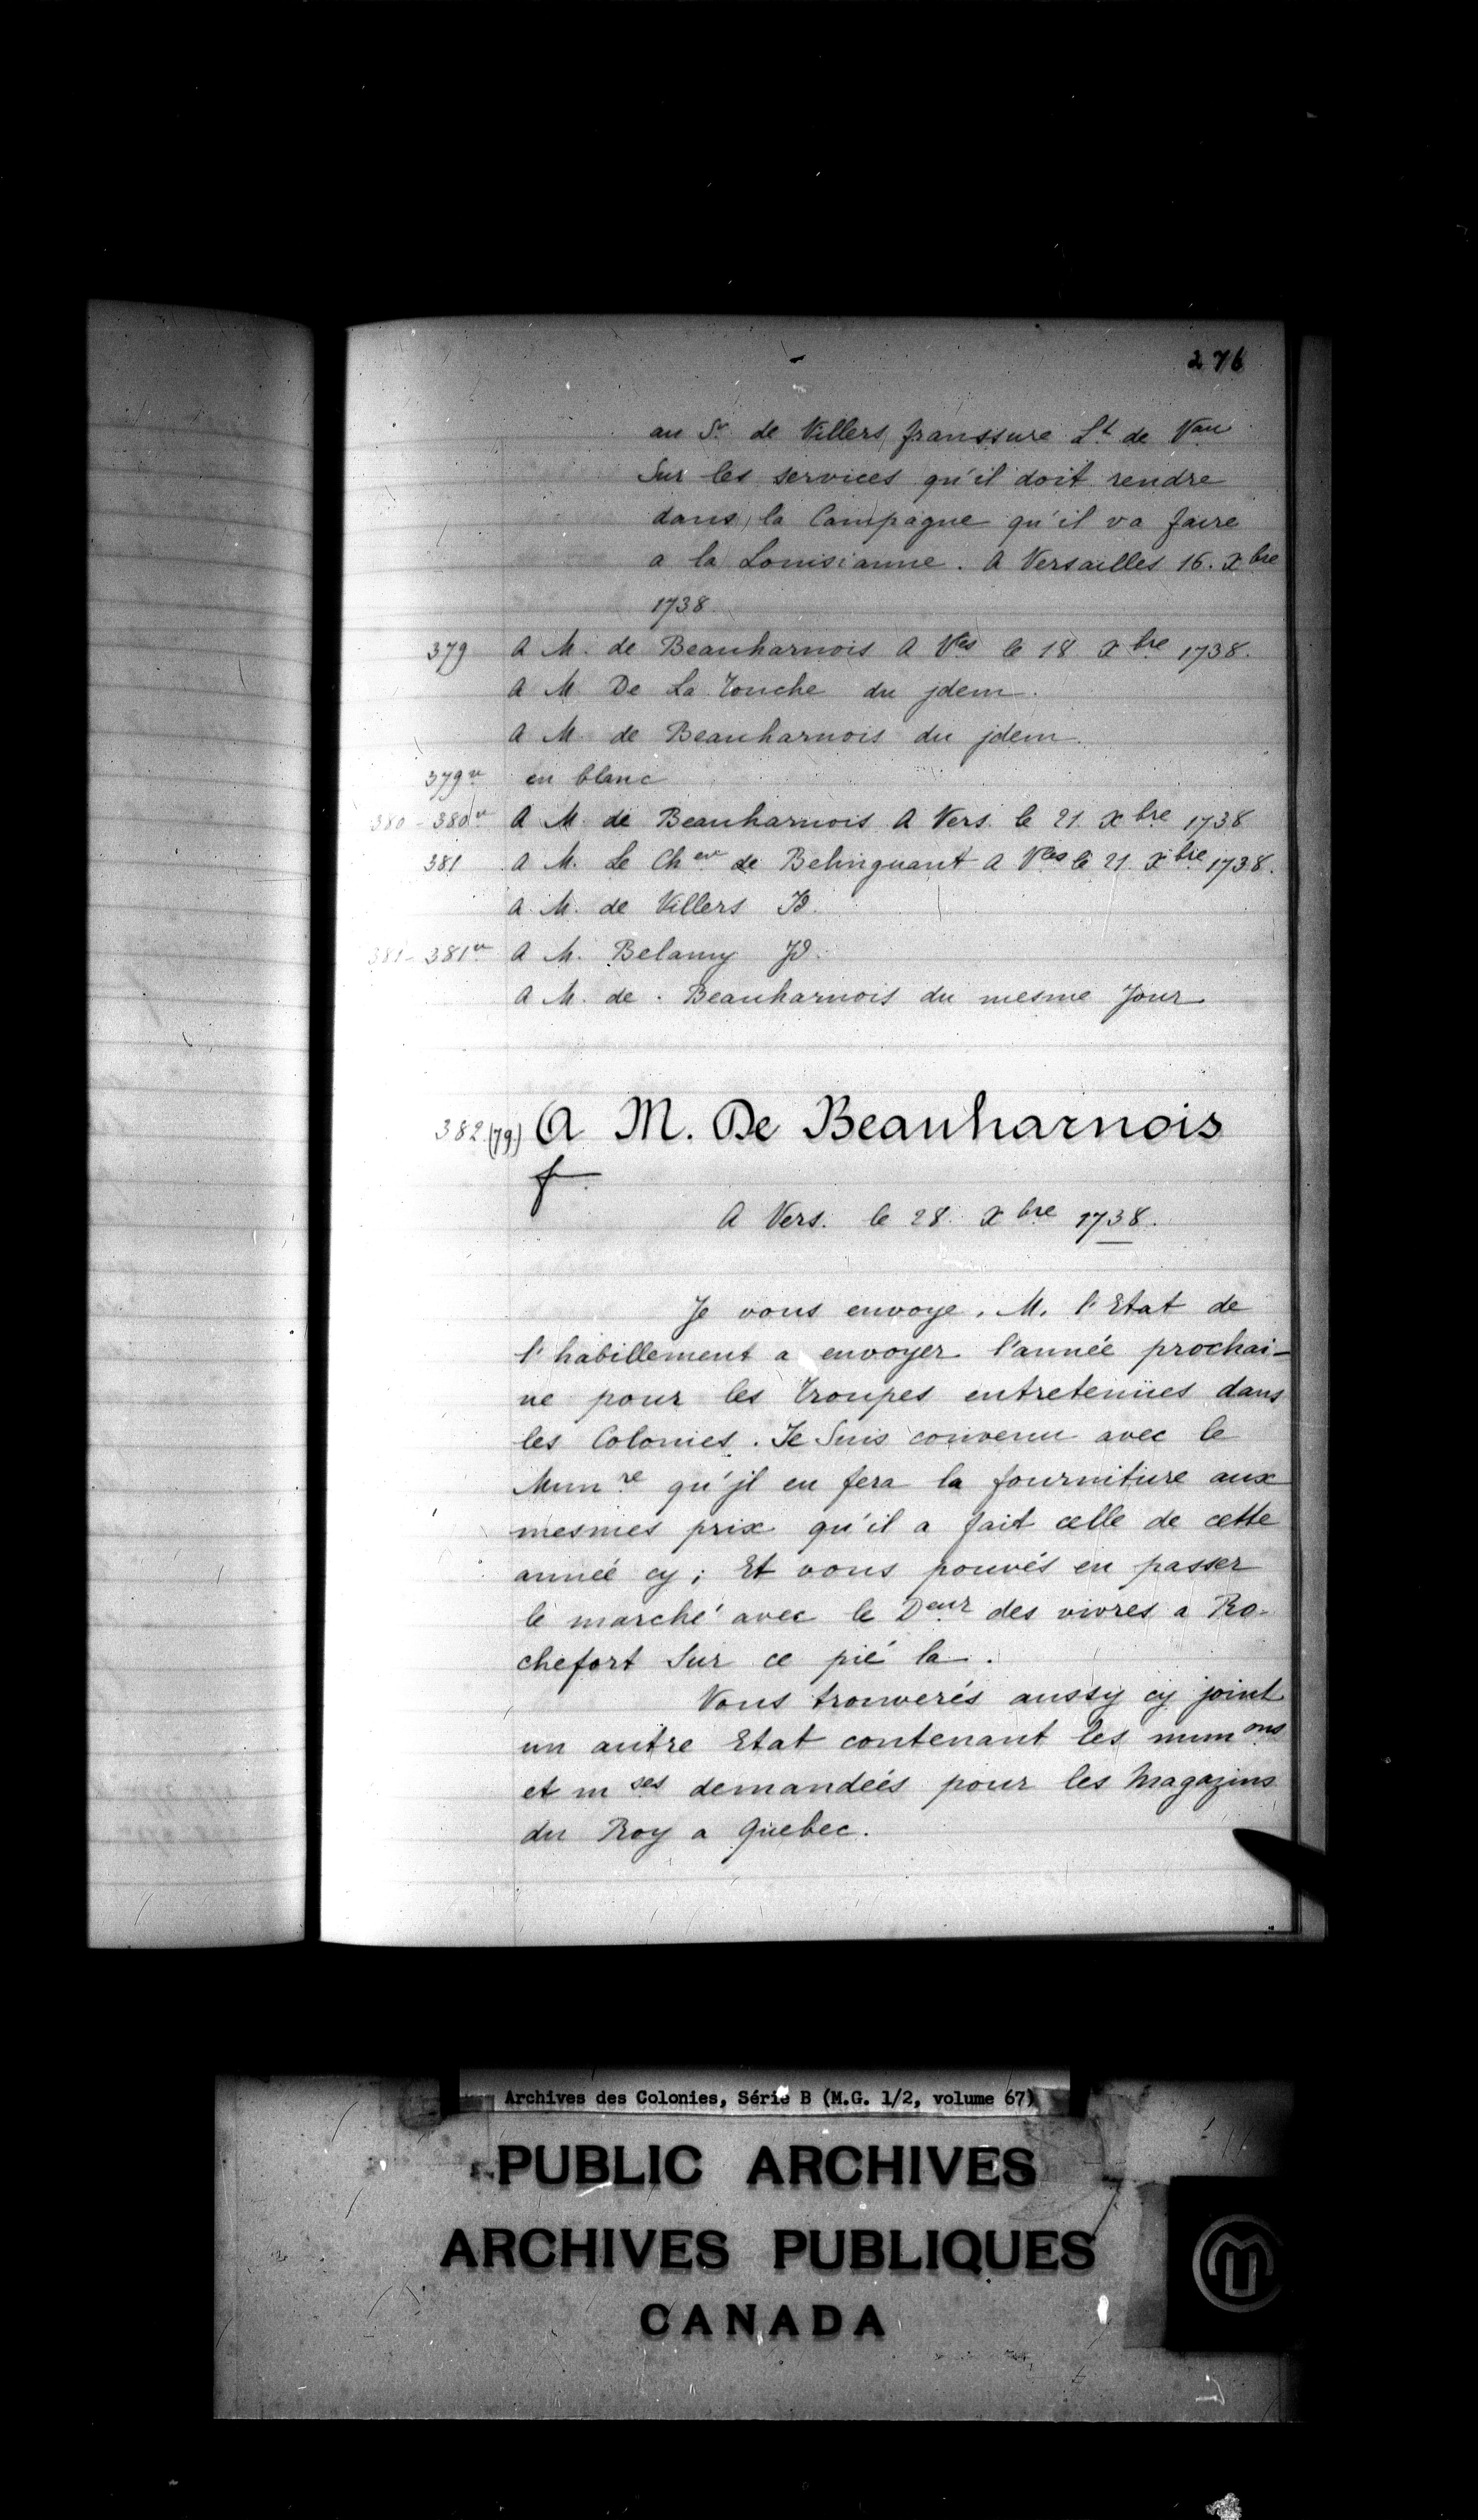 276
au Sr. de Villers franssure Lt. de Vau
Sur les services qu'il doit rendre
dans la Campagne qu'il va faire
a la Louisianne. A Versailles 16. xbre
1738
379 A M. de Beauharnois A Vles le 18 xbre 1738.
A M De La Touche du jdem.
A M de Beauharnois du jdem.
379v en blanc
380-380v A M de Beauharnois A Vers. le 21. xbre 1738
381 A M. Le Cher de Belinguant A Vles le 21. xbre 1738.
A. M. de Villers Jd.
381-381v A M. Belamy Jd.
A M. de Beauharnois du mesme Jour
382 (79) A M. De Beauharnois
f
A Vers. le 28. xbre 1738.
Je vous envoye, M. l'Etat de
l'habillement a envoyer l'année prochai-
ne pour les Troupes entretenües dans
les Colonies. Je Suis convenu avec le
Munre qu'jl en fera la fourniture aux
mesmes prix qu'il a fait celle de cette
année cy; Et vous pouvés en passer
le marché avec le Deur des vivres a Ro-
chefort Sur ce pié la.
Vous trouverés aussy cy joint
un autre Etat contenant les munons
et mses demandées pour les Magazins
du Roy a Quebec.
Archives des Colonies, Série B (M.G. 1/2, volume 67)
PUBLIC ARCHIVES
ARCHIVES PUBLIQUES
CANADA